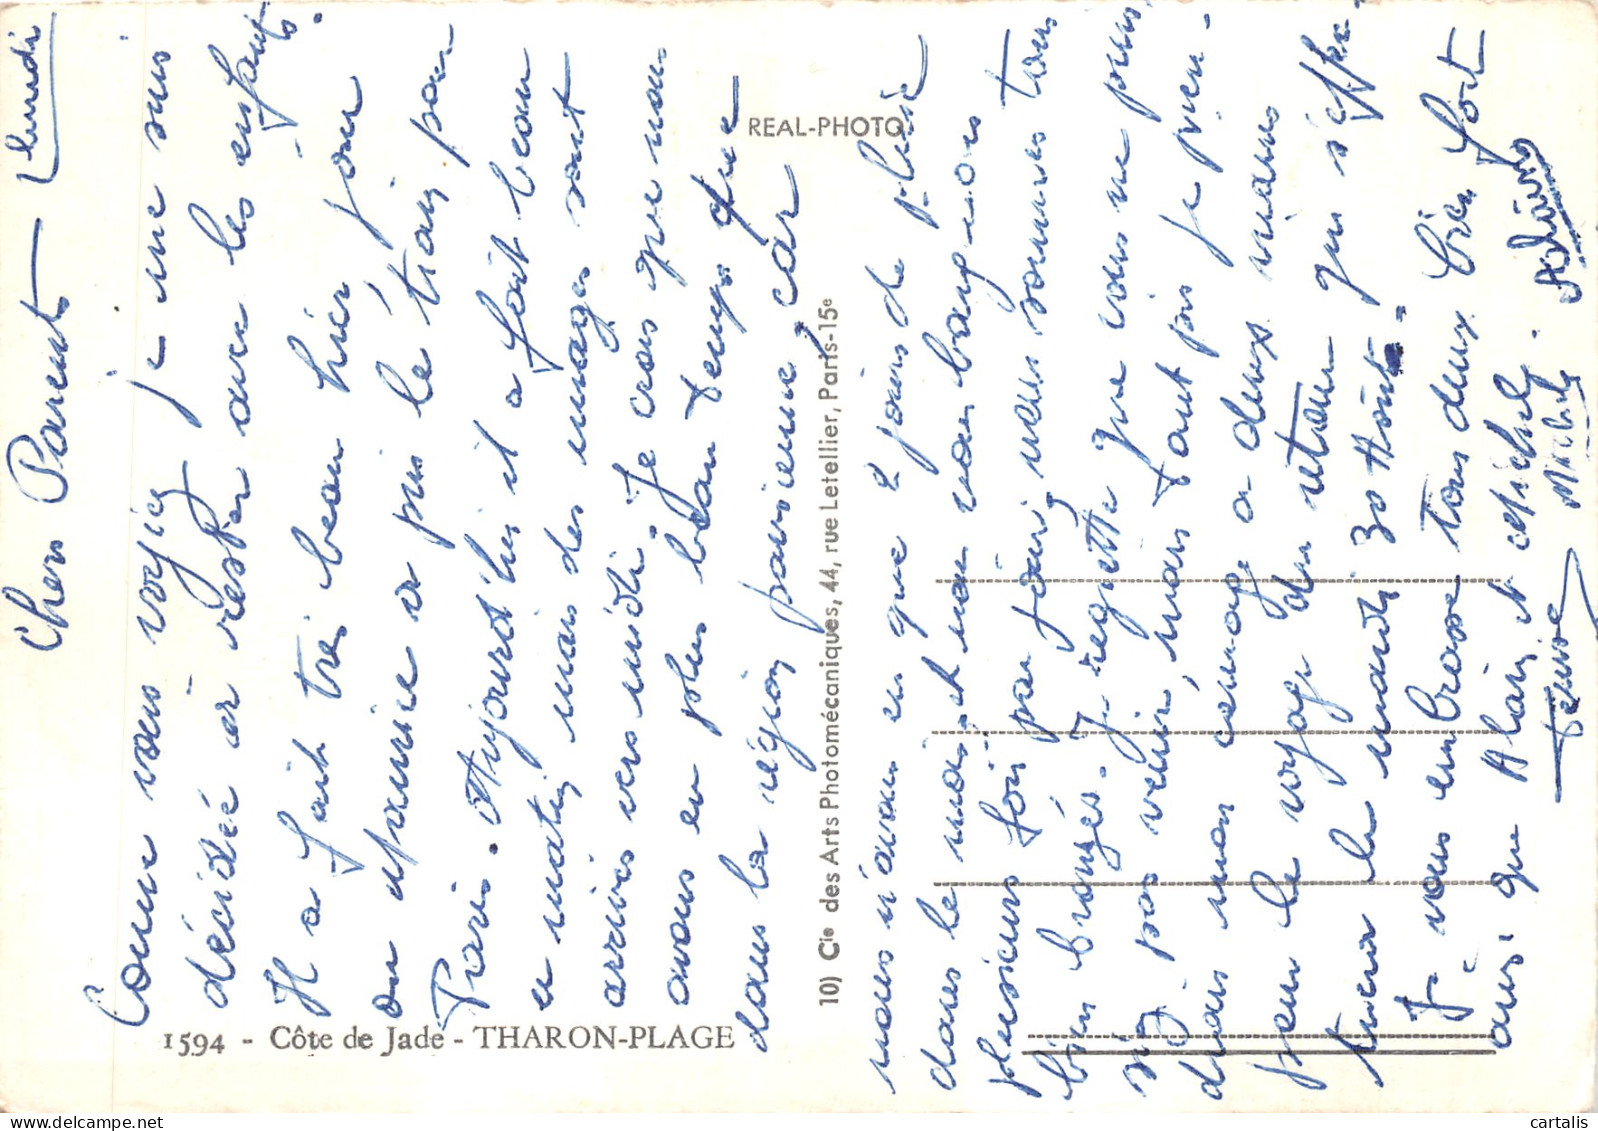 Lundi
Chers Parents
Comme vous voyez je me suis
décidée à rester avec les enfants.
Il a fait très beau hier, jour
où Maurice a pris le train pour
Paris. Aujourd'hui il a fait beau
ce matin mais des nuages sont
arrivés vers midi. Je crois que nous
avons eu plus beau temps que
dans la région parisienne, car
nous n'avons eu que 2 jours de pluie
dans le mois et nous nous baignons
plusieurs fois par jour, nous sommes tous
bien bronzés. Je regrette que vous ne puis-
siez pas venir, mais tant pis je pren-
drais mon courage à deux mains
pour le voyage du retour qui s'effec-
tuera le mardi 30 Août.
Je vous embrasse tous deux bien fort
ainsi que Alain et
Denise
REAL-PHOTO
10) Cie des Arts Photomécaniques, 44, rue Letellier, Paris-15e
1594 - Côte de Jade - THARON-PLAGE
cartalis